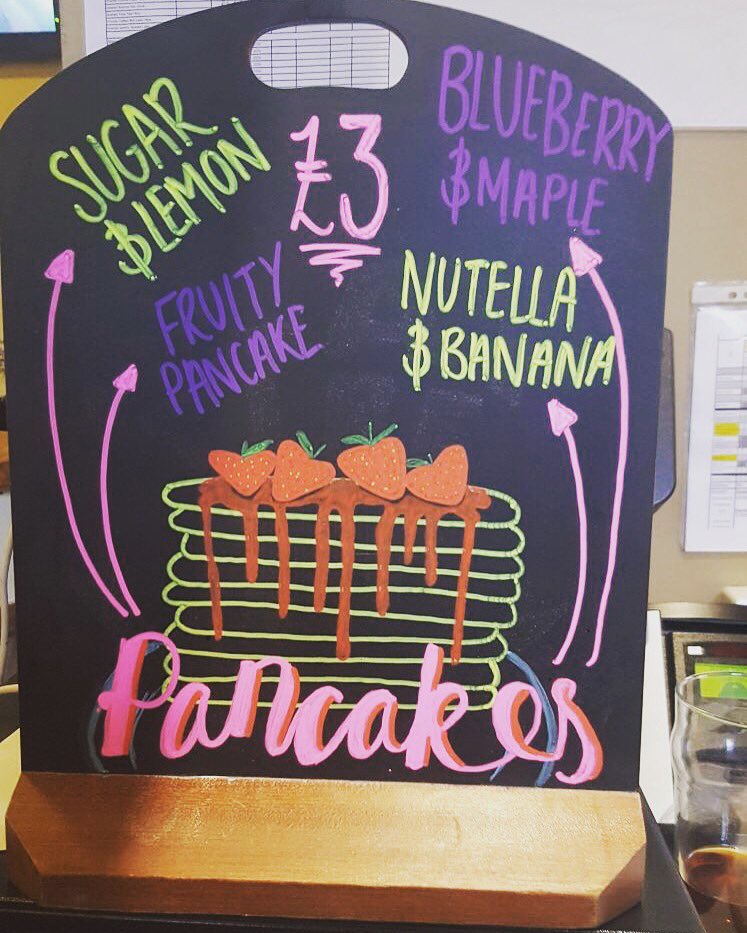 SUGAR
& LEMON
£3
BLUEBERRY
& MAPLE
FRUITY
PANCAKE
NUTELLA
& BANANA
Pancakes